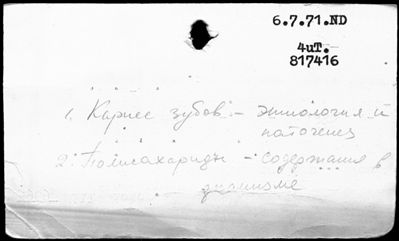 6.7.71.ND
4uT.
817416
1. Кариес зубов – этиология и
патогенез
2. Полисахариды – содержание в
организме